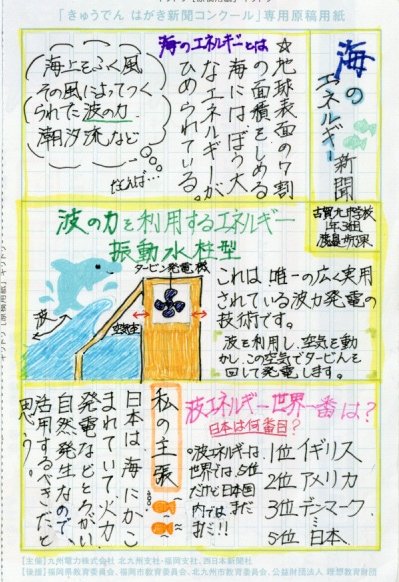 「きゅうでん はがき新聞コンクール」専用原稿用紙
海の
エネルギー
新聞
古賀九中学校
1年3組
海のエネルギーとは
☆地球表面の7割
の面積をしめる
海にはぼう大
なエネルギーが
ひめられている。
海上をふく風
その風によってつく
られてた波の力
潮汐流など
たとえば…
波の力を利用するエネルギー
振動水柱型
タービン発電機
空気室
波
これは唯一の広く実用
されている波力発電の
技術です。
波を利用し、空気を動
かし、この空気でタービンを
回して発電します。
波エネルギー世界一番は?
日本は何番目?
1位 イギリス
2位 アメリカ
3位 デンマーク
5位 日本
。波エネルギーは、
世界では、5位
だけど日本国
内ではまだ
まだ!!
私の主張
日本は海にかこ
まれていて火力
発電などとちがい
自然発生なので、
活用するべきだと
思う。
【主催】九州電力株式会社 北九州支社・福岡支社、西日本新聞社
【後援】福岡県教育委員会、福岡市教育委員会、北九州市教育委員会、公益財団法人 理想教育財団